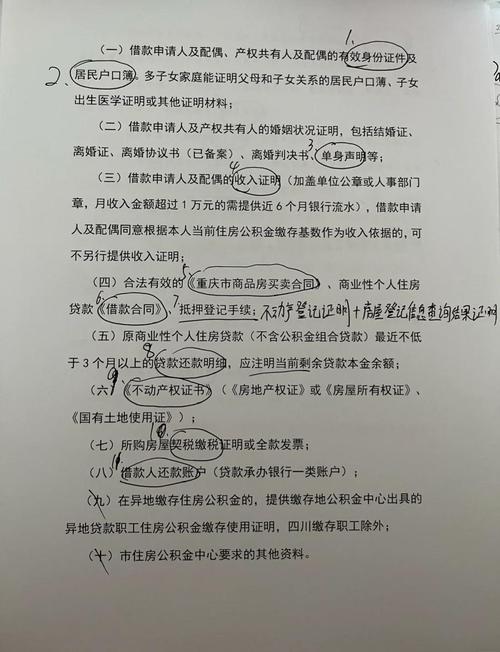 1.
（一）借款申请人及配偶、产权共有人及配偶的有效身份证件及
2、居民户口簿，多子女家庭能证明父母和子女关系的居民户口簿、子女
出生医学证明或其他证明材料；
（二）借款申请人及产权共有人的婚姻状况证明，包括结婚证、
离婚证、离婚协议书（已备案）、离婚判决书、3单身声明等；
（三）借款申请人及配偶的4收入证明（加盖单位公章或人事部门
章，月收入金额超过1万元的需提供近6个月银行流水），借款申请
人及配偶同意根据本人当前住房公积金缴存基数作为收入依据的，可
不另行提供收入证明；
（四）合法有效的5《重庆市商品房买卖合同》、商业性个人住房
贷款6《借款合同》、7抵押登记手续：不动产登记证明＋房屋登记信息查询结果证明
（五）原商业性个人住房贷款（不含公积金组合贷款）最近不低
于3个月以上的8贷款还款明细，应注明当前剩余贷款本金余额；
（六）9《不动产权证书》（《房地产权证》或《房屋所有权证》、
《国有土地使用证》）；
（七）所购房屋10契税缴税证明或全款发票；
（八）11借款人还款账户（贷款承办银行一类账户）；
（九）在异地缴存住房公积金的，提供缴存地公积金中心出具的
异地贷款职工住房公积金缴存使用证明，四川缴存职工除外；
（十）市住房公积金中心要求的其他资料。